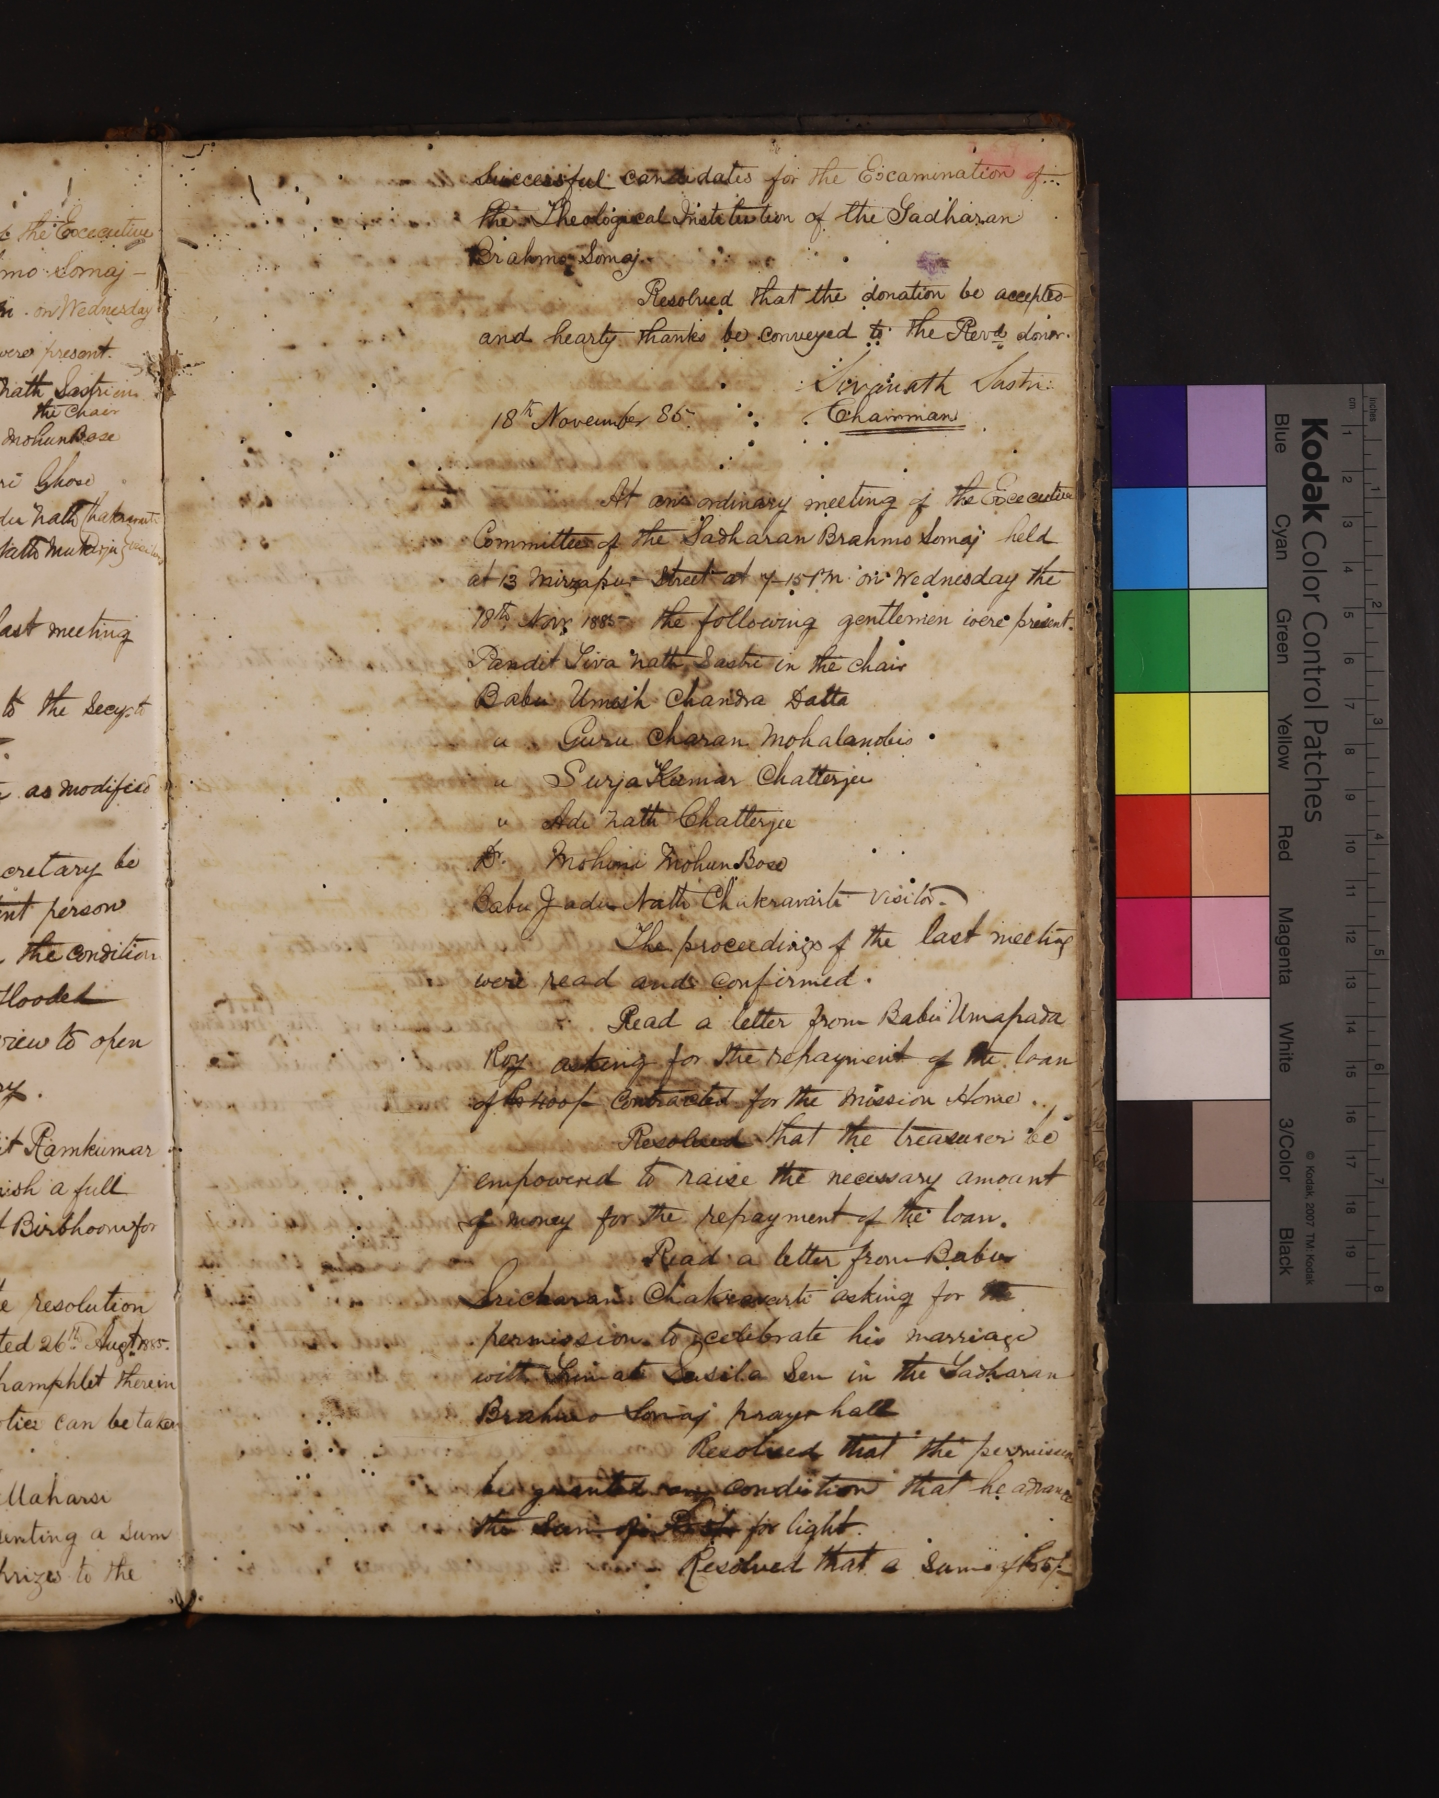 f the Executive
hmo Somaj –
on Wednesday
were present.
nath Sastri in
the chair
Mohun Bose
ri Ghose
du Nath Chakravarti
Nath Mukerji
last meeting
to the Secy.
as modified
cretary be
ent person
the condition
Hooded
view to open
ry.
it Ramkumar
nish a full
Birbhoom for
e resolution
ted 26th Augt 1885.
pamphlet therein
otice can be taken
Maharsi
senting a sum
prizes to the
Successful candidates for the Examination of
the Theological Institution of the Sadharan
Brahmo Somaj.
Resolved that the donation be accepted
and hearty thanks be conveyed to the Revd. donor.
Sivanath Sastri
18th November 85. Chairman
At an ordinary meeting of the Executive
Committee of the Sadharan Brahmo Somaj held
at 13 Mirzapur Street at 7-15 PM on Wednesday the
18th Nov 1885 the following gentlemen were present.
Pandit Siva Nath Sastri in the chair
Babu Umesh Chandra Datta
" Guru Charan Mohalanobis
" Surja Kumar Chatterjee
" Adi Nath Chatterjee
Dr. Mohini Mohun Bose
Babu Jadu Nath Chakravarti Visitor.
The proceedings of the last meeting
were read and confirmed.
Read a letter from Babu Umapada
Roy asking for the repayment of the loan
of Rs 400/- contracted for the Mission Home.
Resolved that the treasurer be
empowered to raise the necessary amount
of money for the repayment of the loan.
Read a letter from Babu
Sricharan Chakravarti asking for the
permission to celebrate his marriage
with Srimati Susila Sen in the Sadharan
Brahmo Somaj prayer hall
Resolved that the permission
be granted on condition that he advance
the sum of for light.
Resolved that a sum of Rs 5/-
Kodak Color Control Patches
Blue Cyan Green Yellow Red Magenta White 3/Color Black
© Kodak, 2007 TM: Kodak
inches 1 2 3 4 5 6 7 8
cm 1 2 3 4 5 6 7 8 9 10 11 12 13 14 15 16 17 18 19